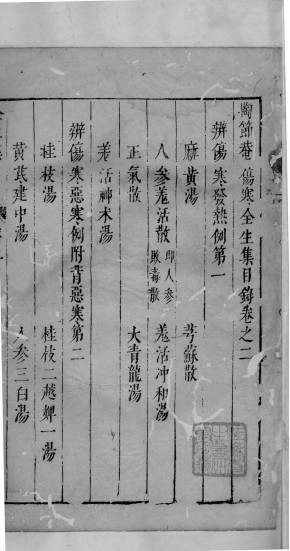 陶節菴傷寒全生集目錄卷之二
辨傷寒發熱例第一
麻黃湯　芎蘇散
人參羗活散即人參敗毒散　羗活冲和湯
正氣散　大青龍湯
羗活神术湯
辨傷寒惡寒例附背惡寒第二
桂枝湯　桂枝二越婢一湯
黃芪建中湯　人參三白湯